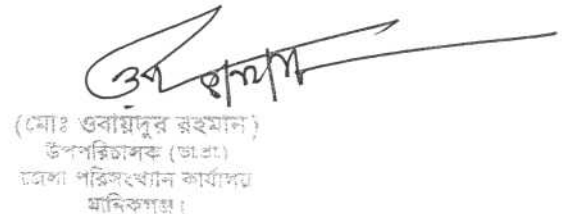 (মোঃ ওবায়দুর রহমান)
উপপরিচালক (ভা.প্রা.)
জেলা পরিসংখ্যান কার্যালয়
মানিকগঞ্জ।